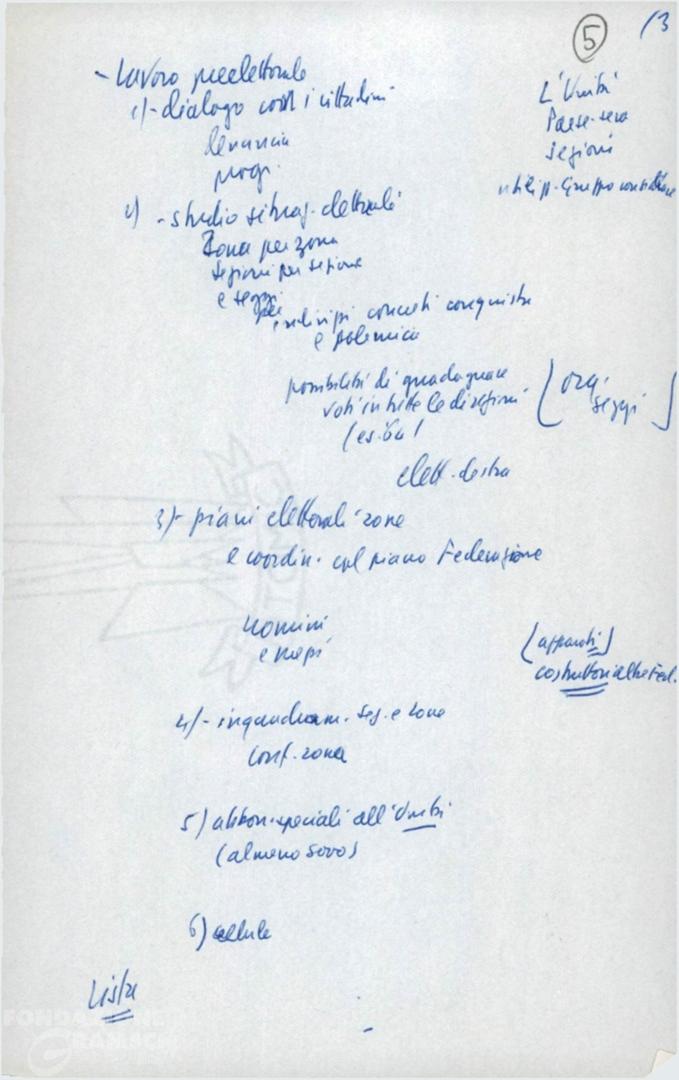 5
13
- Lavoro preelettorale
1)- dialogo con i cittadini
denuncia
prog.
L'Unità
Paese-sera
sezioni
utilizz. Gruppo consiliare
2) - studio situaz. elettorali
Zona per zona
sezioni per sezione
e seggi
concreti conquista
e polemica
possibilità di guadagnare
voti in tutte le direzioni
(es.
[org.
seggi]
elett. destra
3)- piani elettorali zone
e coordin. col piano Federazione
uomini
e mezzi
[apparati]
costruttori altre Fed.
4)- inquadram. sez. e zone
conf. zona
5) abbon. speciali all'Unità
(almeno 5000)
6) cellule
Liste
FONDAZIONE
GRAMSCI